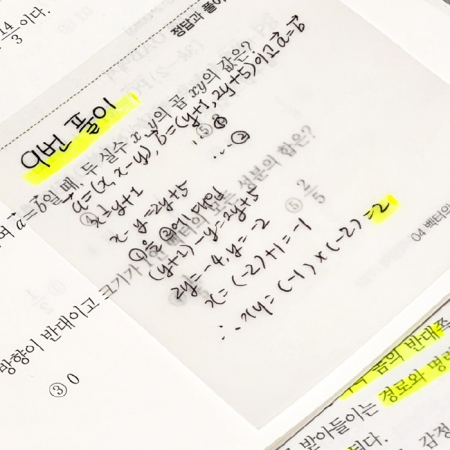 14/3 이다.
정답과 풀이
9번 풀이
a=b일 때, 두 실수 x, y의 곱 xy의 값은?
a⃗=(x, x-y), b⃗=(y+1, 2y+5)이고 a⃗=b⃗
x=y+1 …①
x-y=2y+5 …②
①을 ②에 대입
(y+1)-y=2y+5
2y=-4, y=-2
x=(-2)+1=-1
∴ xy=(-1)×(-2)=2
성분의 합은?
⑤ 2/5
방향이 반대이고 크기가
③ 0
04 벡터의
의 반대쪽
받아들이는 경로와
된다.
감정